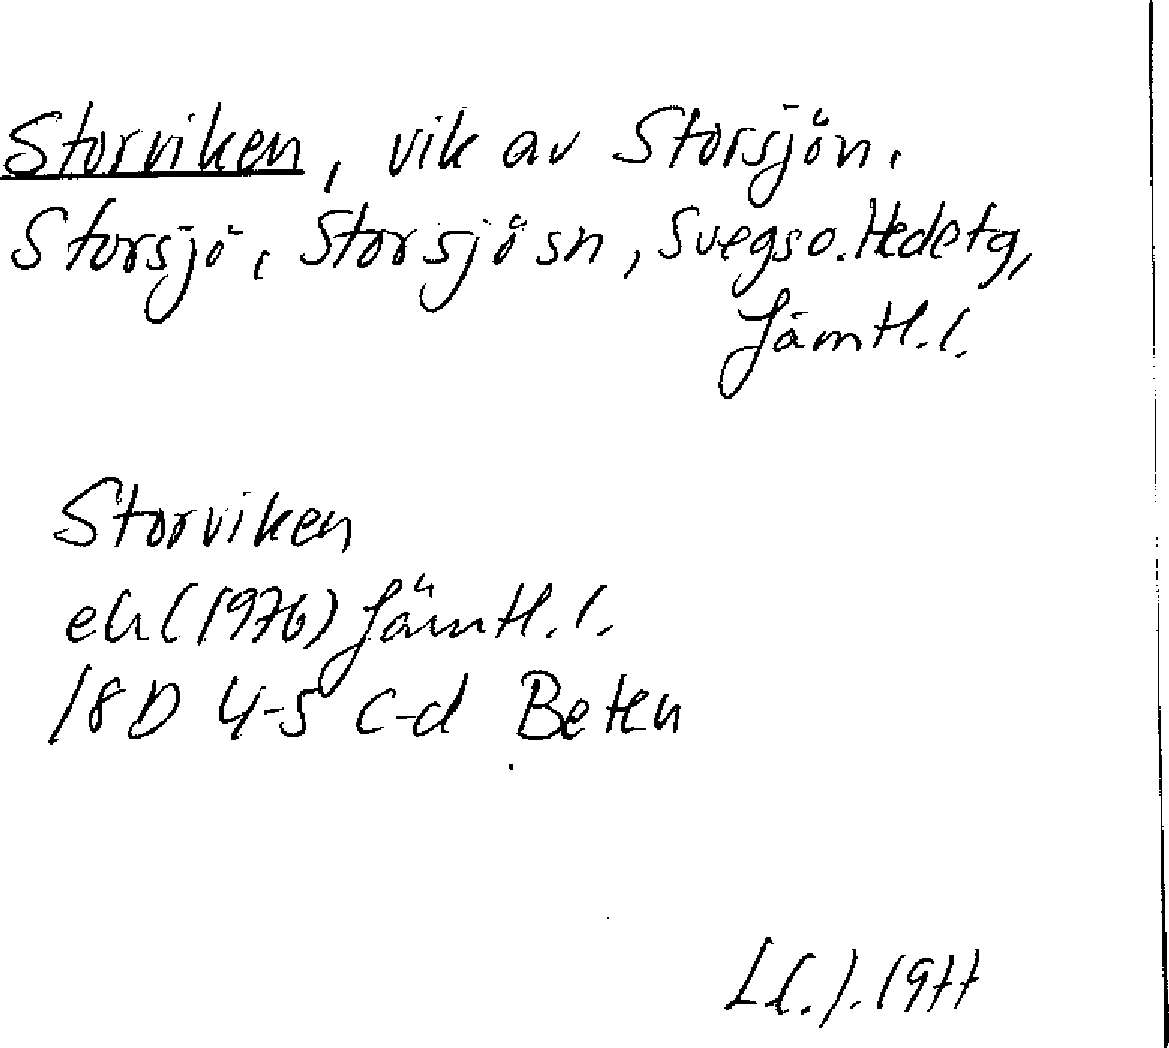 Storviken, vik av Storsjön.
Storsjö, Storsjö sn, Svegs o. Hede tg,
Jämtl. l.
Storviken
ek (1976) Jämtl. l.
18D 4-5 c-d Beten
1977